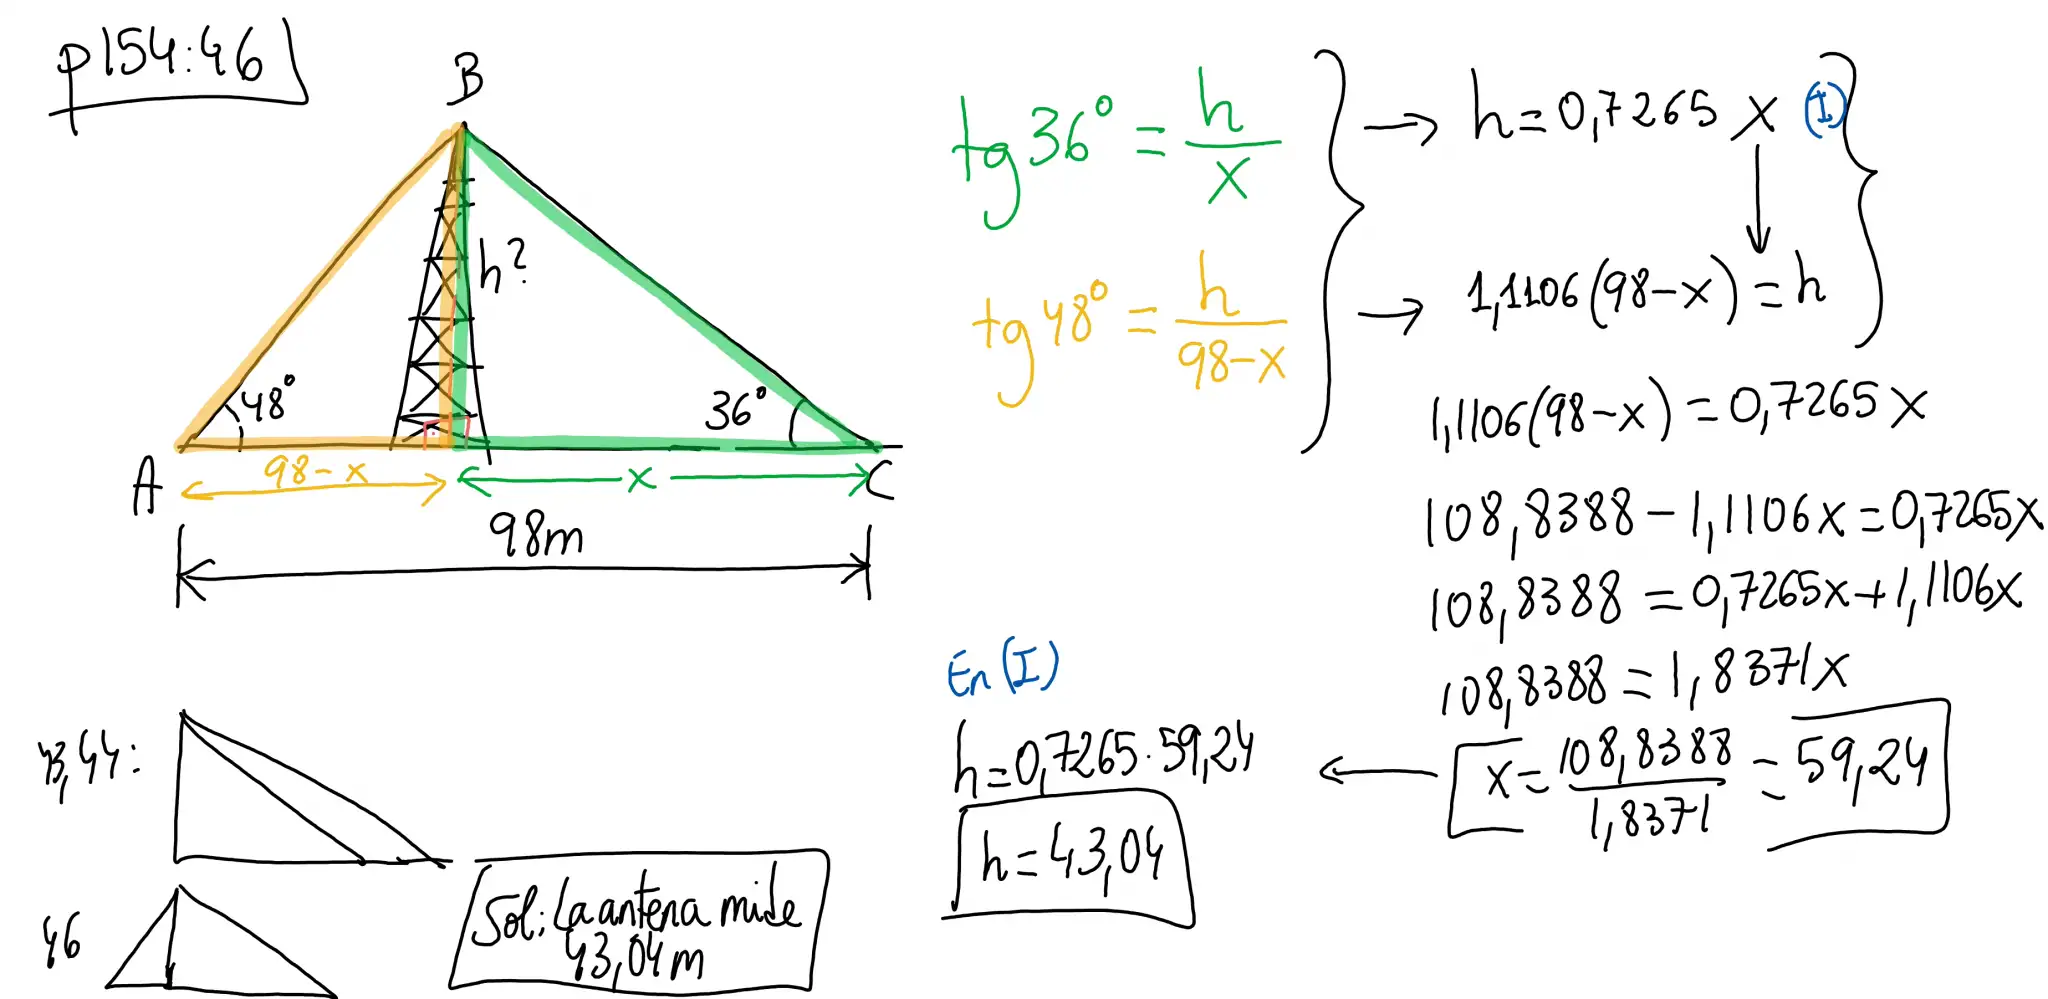 p154:46
B
h?
48°
36°
A
98-x
x
C
98m
tg 36° = h/x
tg 48° = h/(98-x)
h=0,7265 x (I)
1,1106(98-x)=h
1,1106(98-x)=0,7265x
108,8388-1,1106x=0,7265x
108,8388=0,7265x+1,1106x
108,8388=1,8371x
x=108,8388/1,8371=59,24
En (I)
h=0,7265·59,24
h=43,04
43,44:
46
Sol: La antena mide
43,04m